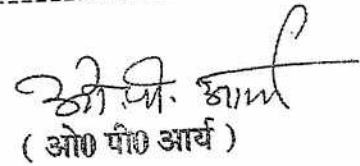 ओ.पी. आर्य
( ओ0 पी0 आर्य )